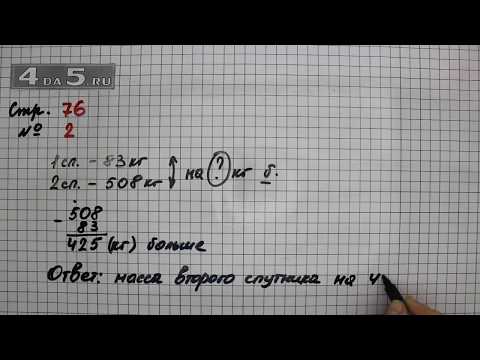 4 DA 5.RU
Стр. 76
№ 2
1 сп. – 83 кг
2 сп. – 508 кг
на ? кг б.
– 508
83
425 (кг) больше
Ответ: масса второго спутника на 4